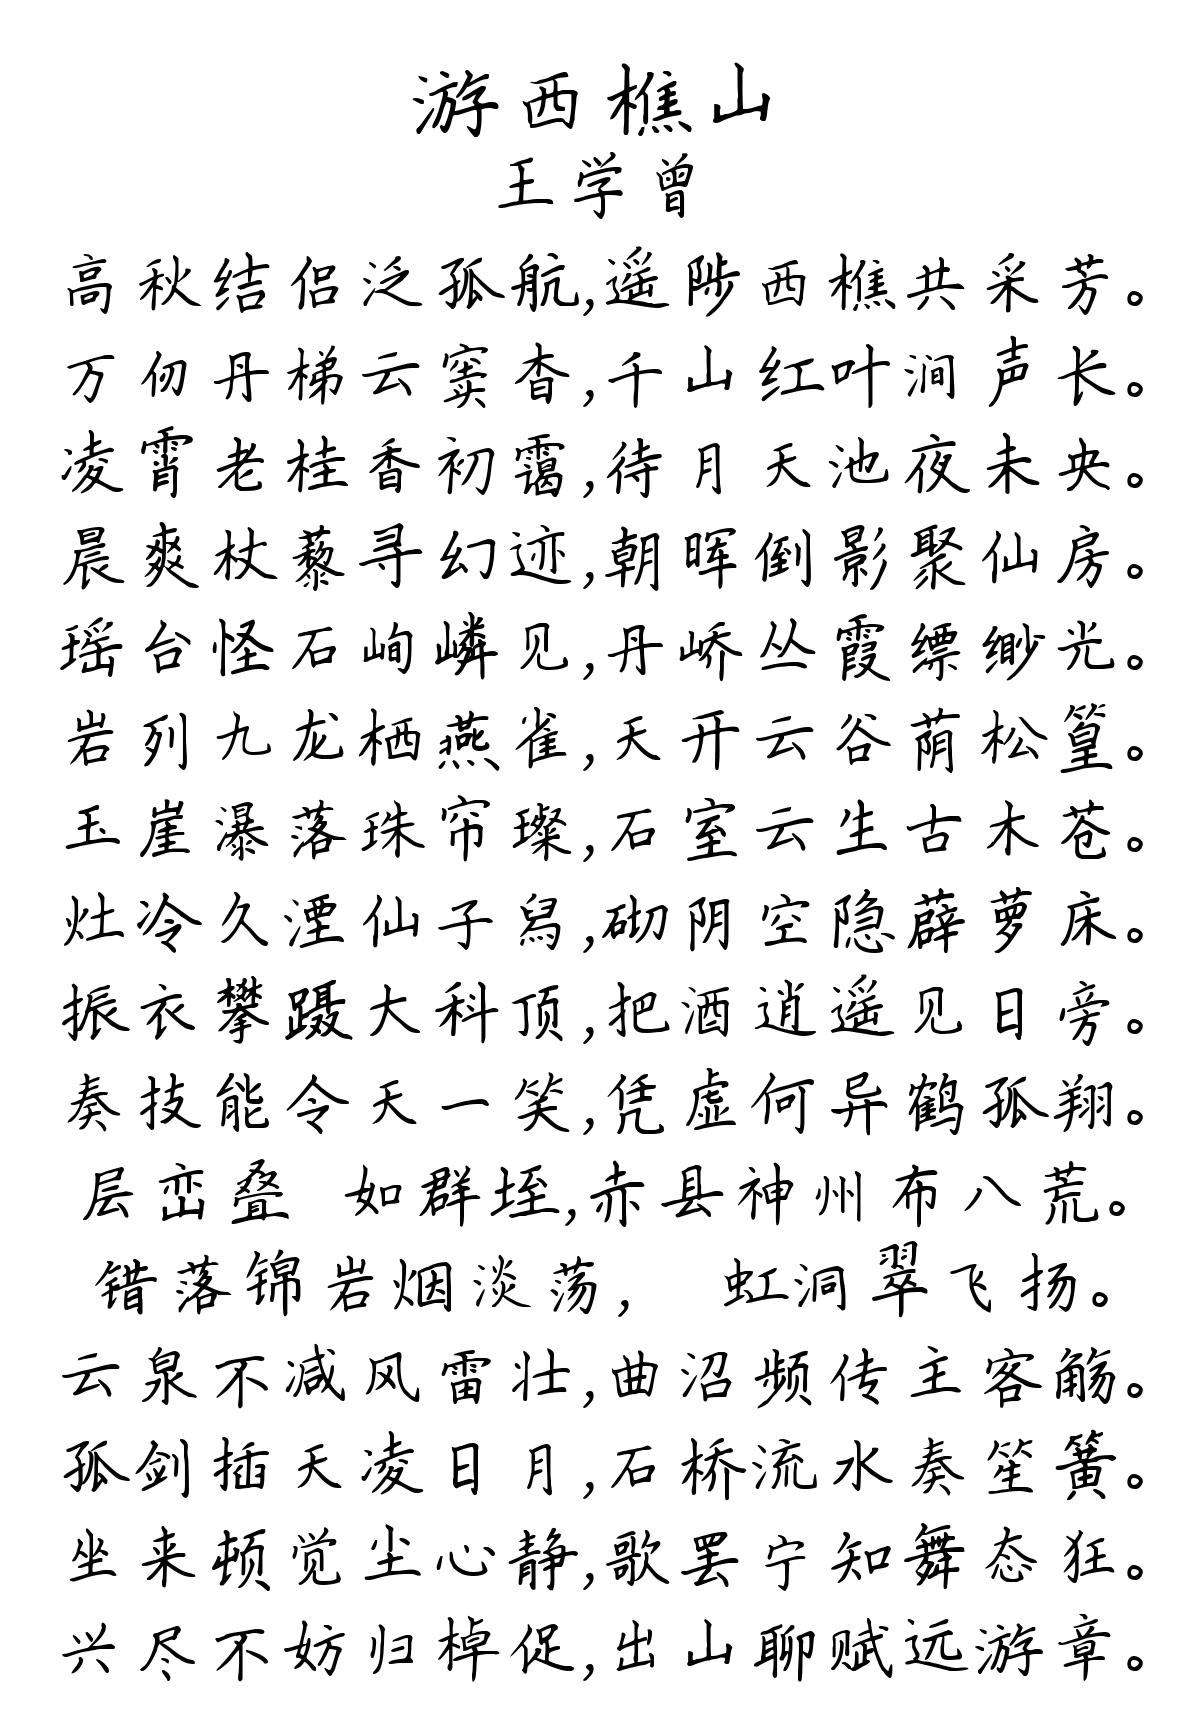 游西樵山
王学曾
高秋结侣泛孤航,遥陟西樵共采芳。
万仞丹梯云窦杳,千山红叶涧声长。
凌霄老桂香初霭,待月天池夜未央。
晨爽杖藜寻幻迹,朝晖倒影聚仙房。
瑶台怪石峋嶙见,丹峤丛霞缥缈光。
岩列九龙栖燕雀,天开云谷荫松篁。
玉崖瀑落珠帘璨,石室云生古木苍。
灶冷久湮仙子舄,砌阴空隐薜萝床。
振衣攀蹑大科顶,把酒逍遥见日旁。
奏技能令天一笑,凭虚何异鹤孤翔。
层峦叠 如群垤,赤县神州布八荒。
错落锦岩烟淡荡, 虹洞翠飞扬。
云泉不减风雷壮,曲沼频传主客觞。
孤剑插天凌日月,石桥流水奏笙簧。
坐来顿觉尘心静,歌罢宁知舞态狂。
兴尽不妨归棹促,出山聊赋远游章。